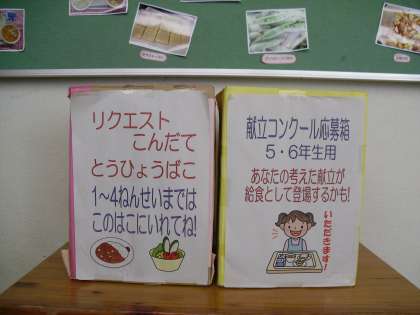 リクエスト
こんだて
とうひょうばこ
1〜4ねんせいまでは
このはこにいれてね!
献立コンクール応募箱
5・6年生用
あなたの考えた献立が
給食として登場するかも!
いただきます!